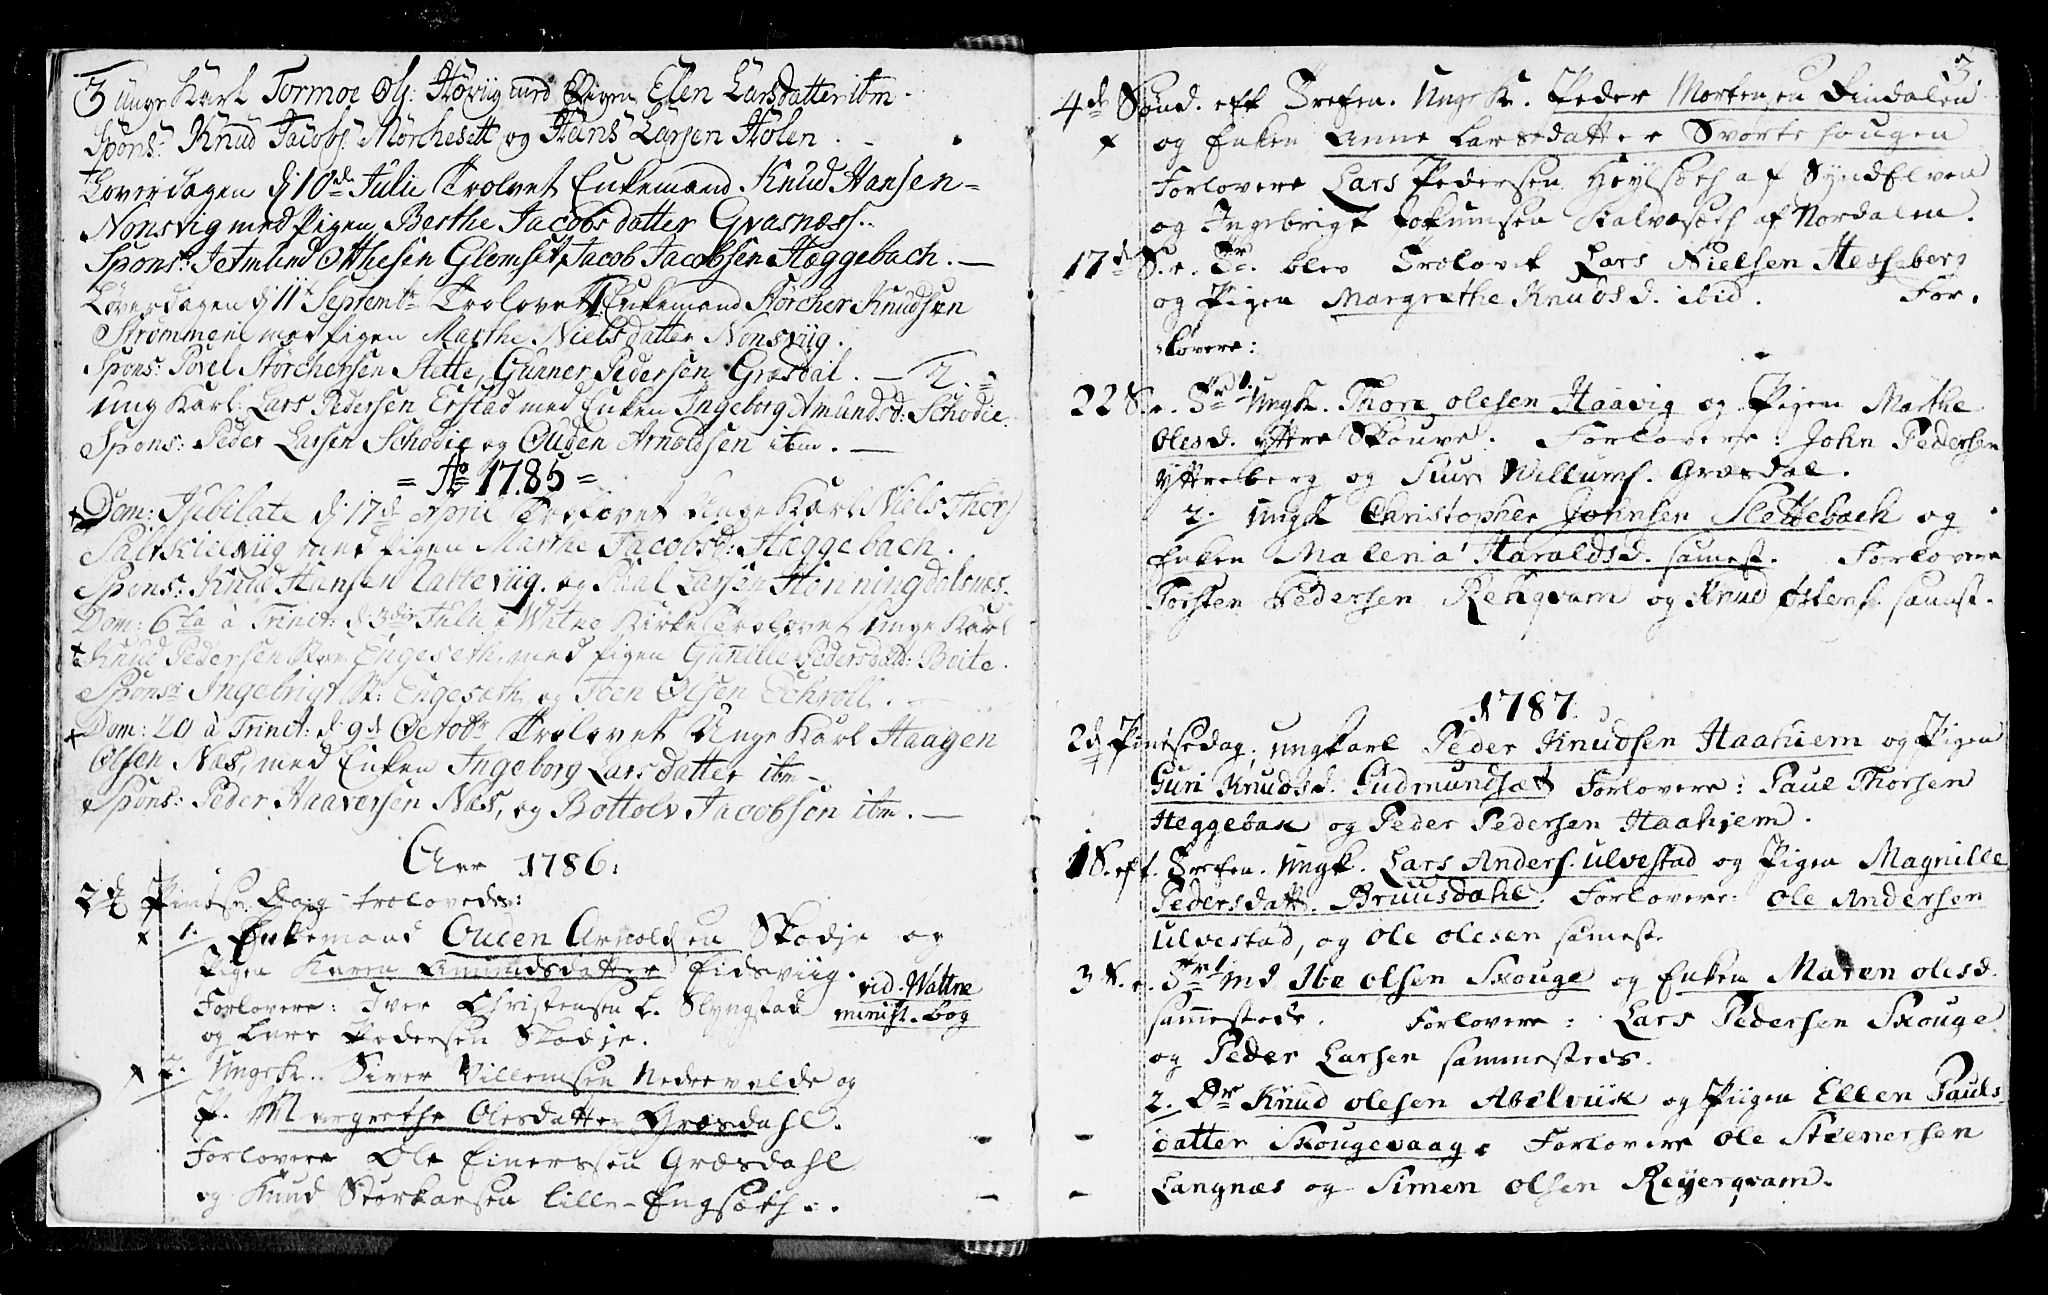 3 unge Karl Tormoe Ols: Høviig med Pigen Elen Larsdatter ibm.
Spons: Knud Jacobs: Mørchesett og Hans Larsen Holen.
Løverdagen d 10de Julii Trolovet Enkemand Knud Hansen
Nonsvig med Pigen Berthe Jacobsdatter Gvasness.
Spons: Jetmund Otthesen Glomset, Jacob Jacobsen Hæggebach.
Løverdagen d 11t Septembr Trolovet 1. Enkemand Størcher Knudsen
Strømmen med Pigen Marthe Nielsdatter Nonsviig.
Spons: Povel Størchersen Stette, Gunner Pedersen Græsdal. 2.
ung Karl: Lars Pedersen Erstad med Enken Ingeborg Amunds.d: Schodie.
Spons: Peder Larsen Schodie og Ouden Arnoldsen ibm.
= Ao 1785 =
Dom: Jubilate d: 17de April Trolovet Unge Karl Niels Thors:
med Pigen Marthe Jacobsd: Hæggebach.
Spons: Knud Hansen og Paul Larsen
Dom: 6ta à Trinit: d 3die Julii i Watne Kirke Trolovet unge Karl
Knud Pedersen Engeseth med Pigen Gunilie Pedersdatt: Beite.
Spons: Ingebrigt Engeseth og Joen Olsen Echroll.
Dom: 20 à Trinit: d 9d Octobr Trolovet Unge Karl Haagen
Olsen Næs, med Enken Ingeborg Larsdatter ibm
Spons: Peder Haaversen Næs, og Bottolv Jacobsen ibm.
Aar 1786:
2d Pintse Dag trolovede:
1. Enkemand Ouden Arnoldsen Skodje og
Pigen Karen Amundsdatter Eidsviig.
Forlovere: Iver Christensen L. Slyngstad vid. Wattne
og Lars Pedersen Skodje. minist. bog
2. Ungek. Siver Villemsen Nedrevelde og
P. Margrethe Olesdatter Græsdahl.
Forlovere Ole Einerssen Græsdahl
og Knud Storkarsen Lille-Engsæth.
3
4de Sønd. eft Trefen. Ungk. Peder Mortensen Dindalen
og Enken Anne Larsedatter Svortehougen
Forlovere Lars Pedersen Heylsæth af Syndelven
og Ingebrigt Jokumsen Kalvesæth af Nordalen.
17de S. e. Tr. blev Trolovet Lars Nielsen Hesseberg
og Pigen Margrethe Knudsd. ibid. For-
lovere:
22 S. e. Tr 1. Ungk. Thore Olesen Haavig og Pigen Marthe
Olesd. yttre Skouve. Forlovere: John Pedersen
Yttreberg og Siur Willums. Græsdal.
2. Ungk Christopher Johnsen Slettebach og
Enken Malena Haraldsd. samest. Forlovere
Torsten Pedersen Rekqvam og Knud Østens. samest.
1787.
2d Pintsedag, ungkarl Peder Knudsen Haahiem og Pigen
Guri Knudsd. Gudmundsæt Forlovere: Paul Thorsen
Heggebak og Peder Pedersen Haahjem.
1 S. eft. Trefen. Ungk. Lars Anders. Ulvestad og Pigen Magnille
Pedersdatt. Bruusdahl. Forlovere: Ole Andersen
Ulvestad, og Ole Olesen samest.
3 S. e. Tr 1 Md Ibe Olsen Skouge og Enken Maren Olesd.
sammestede. Forlovere: Lars Pedersen Skouge
og Peder Larsen sammesteds.
2. Dr Knud Olesen Abelviik og Piigen Ellen Pauls
datter Skougevaag. Forlovere Ole Stenersen
Langnæs og Simen Olsen Reyerqvam.